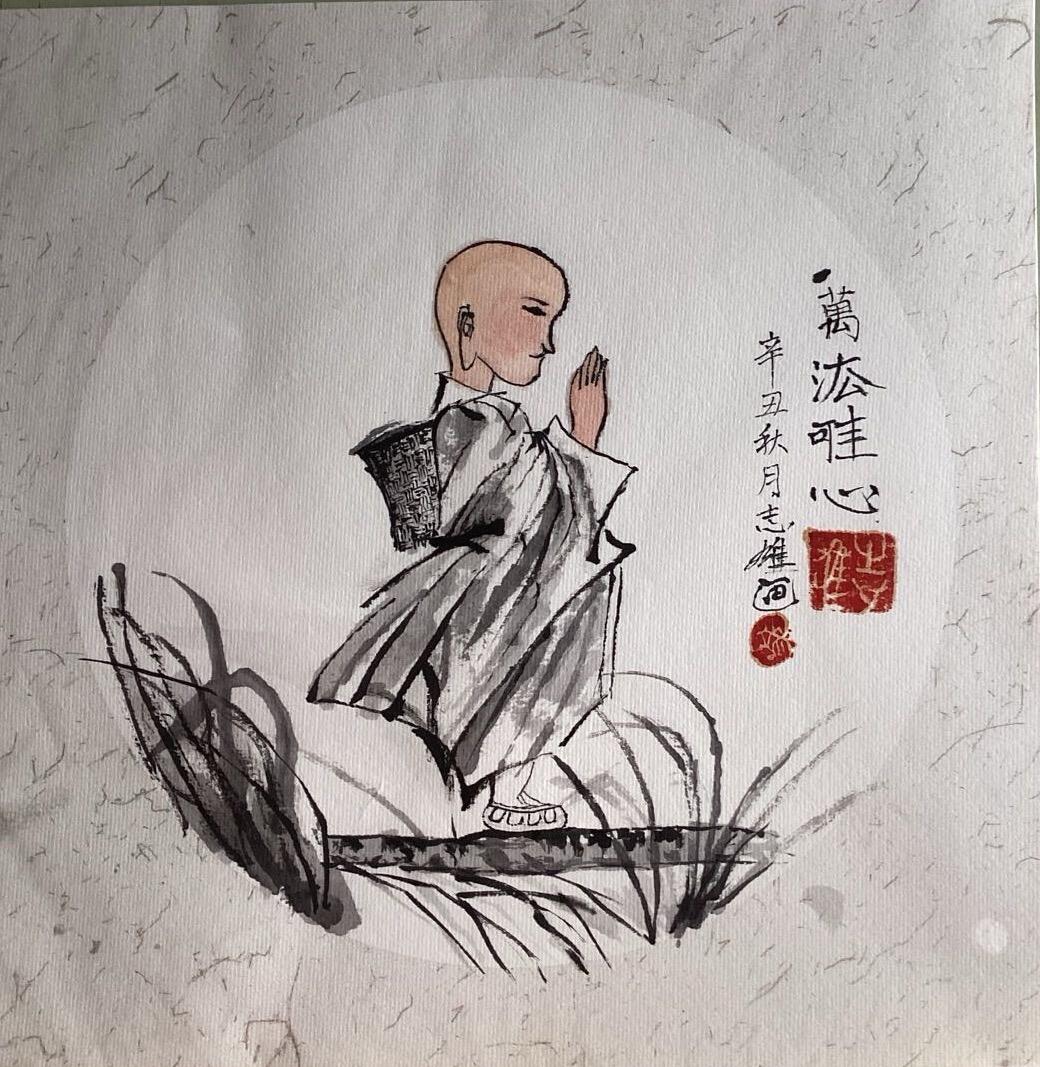 萬法唯心
辛丑秋月志雄画
志雄